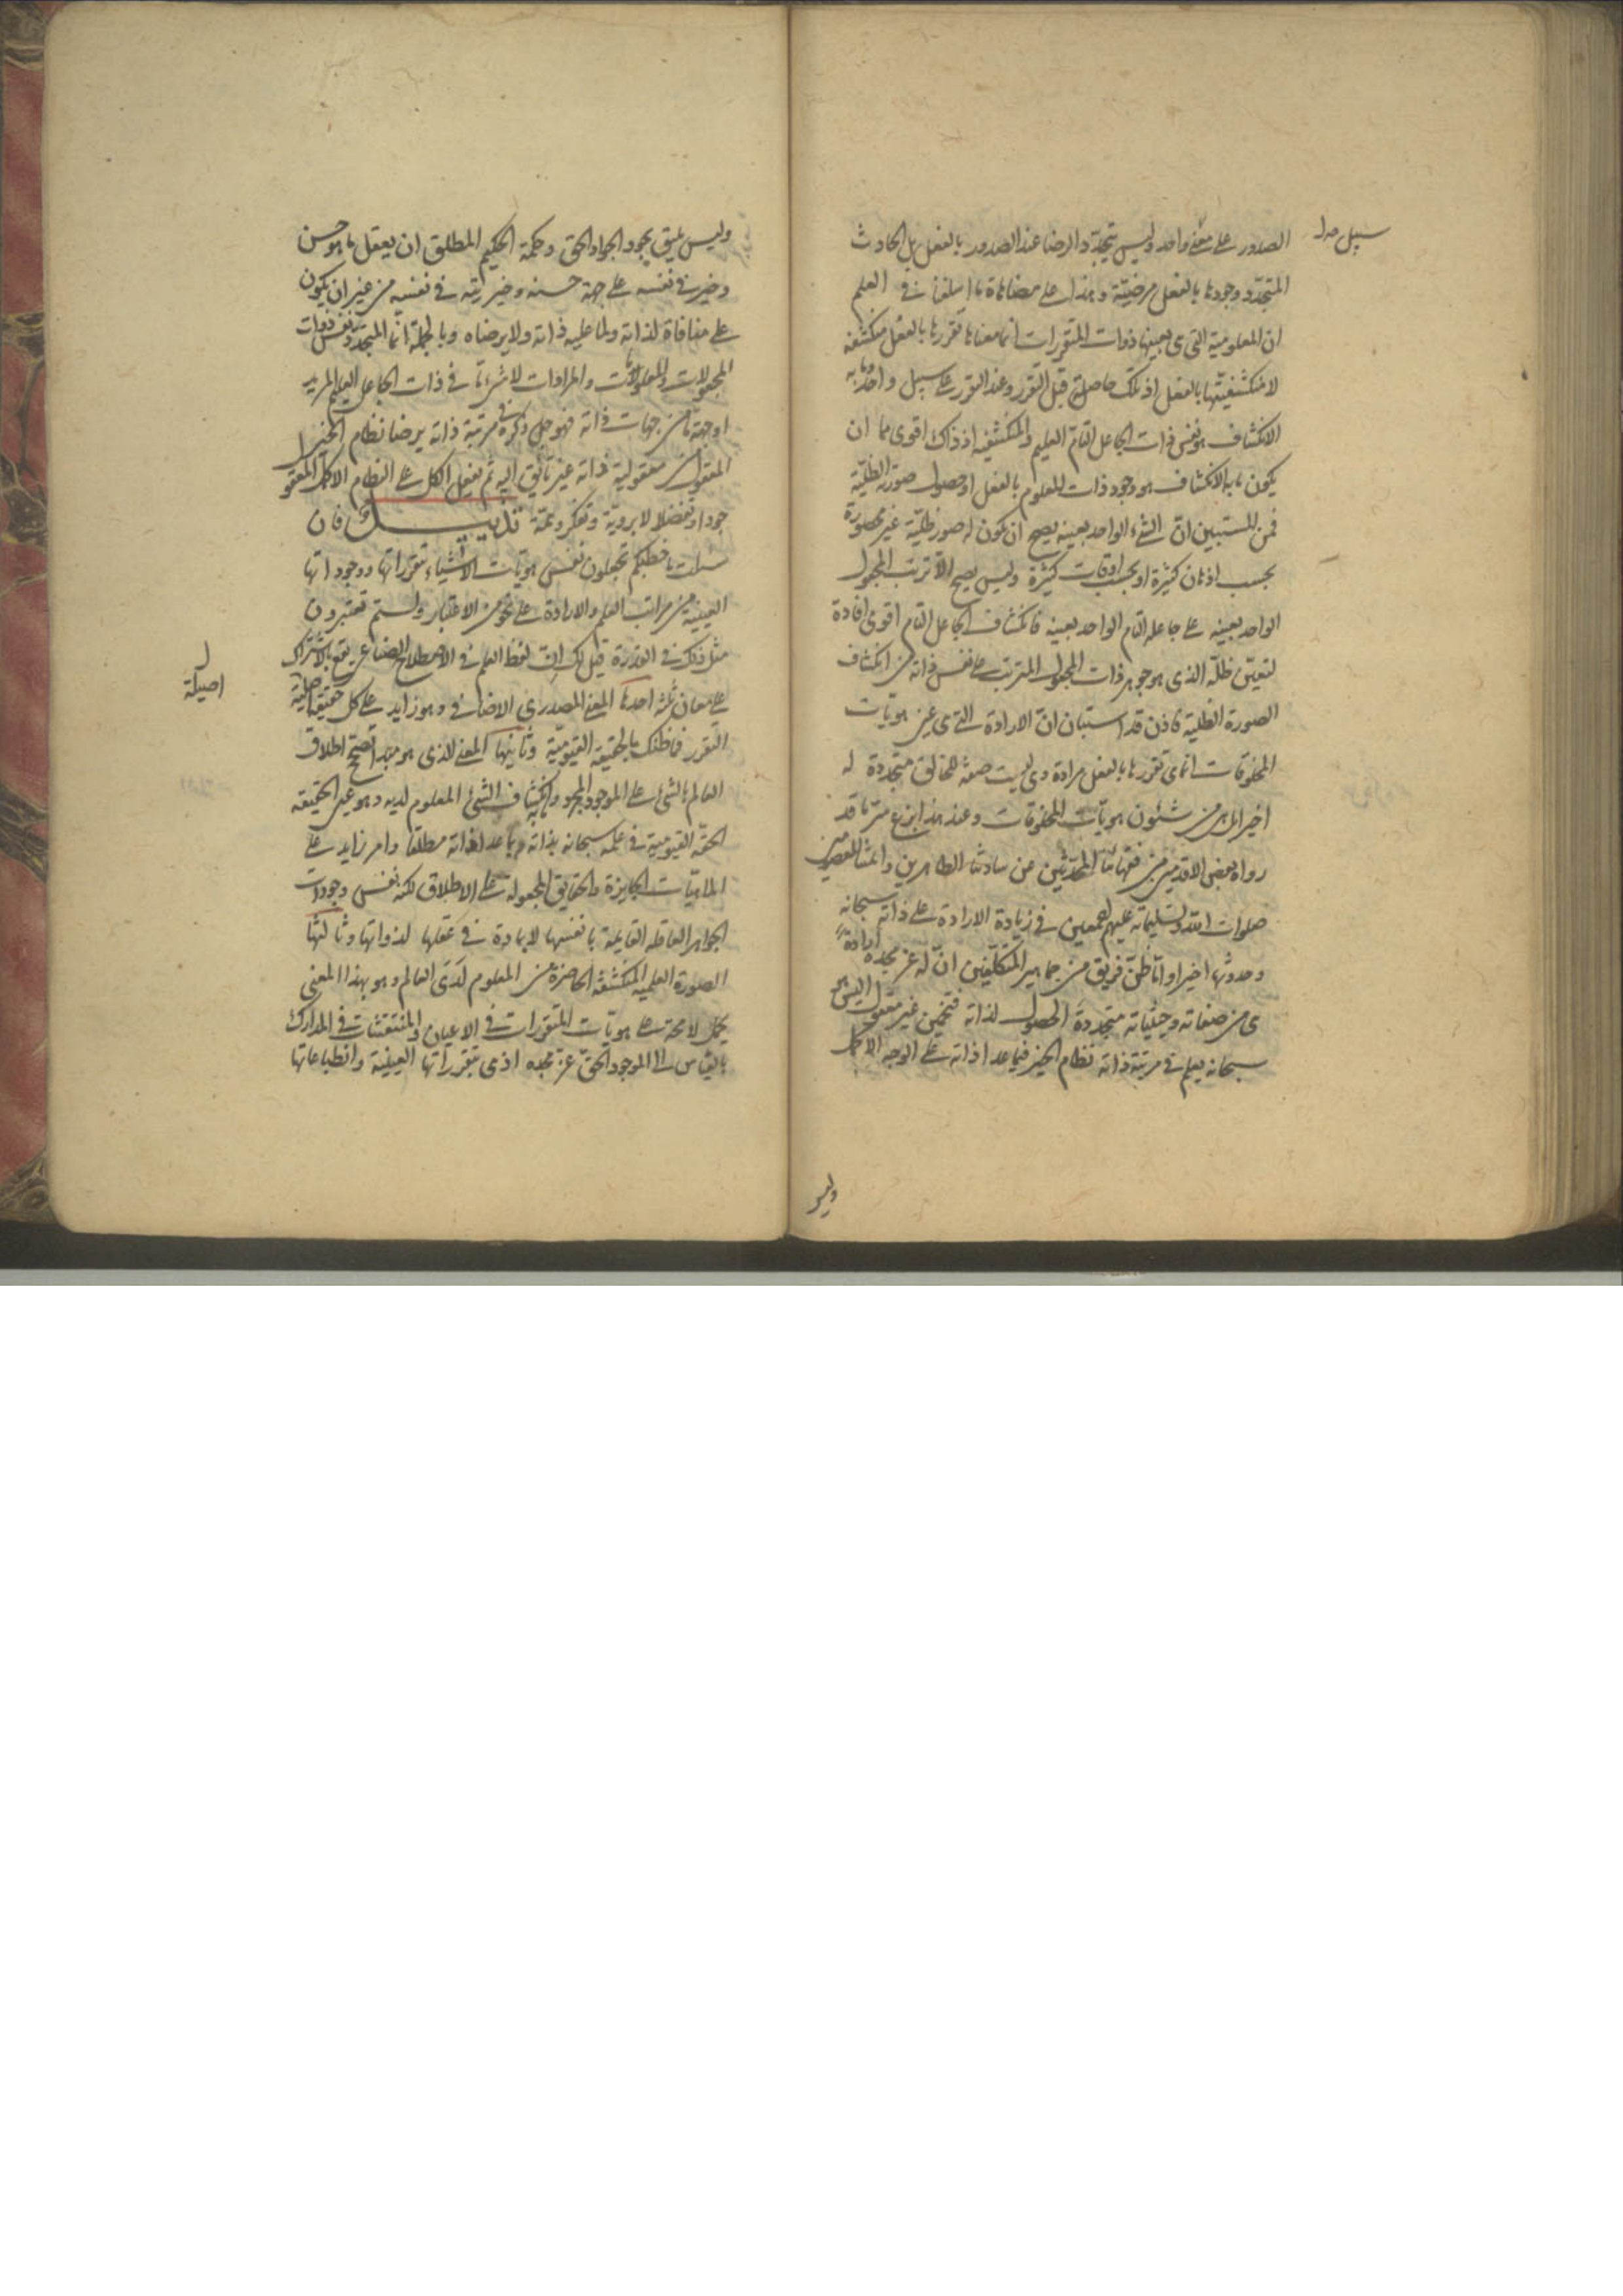 سبيل صدا
الصدور على معنى واحد وليس يتجدد الرضا عند الصدور بالفعل بل الحادث
المتجدد وجودها بالفعل مرضيّة وهذا على مضاهاة ما اسلفنا في العلم
ان المعلومية التي هي بعينها ذوات المتقررات انما معناها تقررها بالفعل منكشفة
لا منكشفيتها بالفعل اذ تلك حاصلة قبل التقرر وعند التقرر على سبيل واحد وما به
الانكشاف هو نفس ذات الجاعل التام العليم والمنكشفية اذ ذاك اقوى مما ان
يكون ما به الانكشاف هو وجود ذات المعلوم بالفعل او حصول صورته الظلّية
فمن المستبين انّ الشيء الواحد بعينه يصح ان تكون له صور ظليّة غير محصورة
بحسب اذهان كثيرة او بحسب اوقات كثيرة وليس يصح الا ترتب المجعول
الواحد بعينه على جاعله التام الواحد بعينه فانكشاف الجاعل التام اقوى افادة
لتعيّن ظلّه الذي هو جوهر ذات المجعول المترتب على نفس ذاته من انكشاف
الصورة الظلية فاذن قد استبان انّ الارادة التي هي عين هويّات
المخلوقات انما هي تقررها بالفعل مرادة وهي ليست صفة للخالق متجددة له
اخيرا بل هي من شئون هويّات المخلوقات وعند هذا بزغ سر ما قد
رواه بعض الاقدمين من فقهائنا المحدّثين عن سادتنا الطاهرين وائمتنا المعصومين
صلوات الله وتسليماته عليهم اجمعين في زيادة الارادة على ذاته سبحانه
وحدوثها اخيرا واما ظنّ فريق من جماهير المتكلّفين انّ له عز مجده ارادة
هي من صفاته وحيثياته متجددة الحصول لذاته فتخمين غير معقول اليس هو
سبحانه يعلم في مرتبة ذاته نظام الخير فيما عدا ذاته على الوجه الاكمل
وليس
وليس يليق بجود الجواد الحق وحكمة الحكيم المطلق ان يعقل ما هو حسن
وخير في نفسه على جهة حسنه وخيريته في نفسه من غير ان يكون
على منافاة لذاته ولما عليه ذاته ولا يرضاه وبالجملة انّما المتجدد نفس ذوات
المجعولات والمعلومات والمرادات لا شيء ما في ذات الجاعل العليم المريد
او جهة ما من جهات ذاته فهو جل ذكره في مرتبة ذاته يرضا نظام الخير
المعقول من معقولية ذاته غير تائق اليه ثم يفعل الكل على النظام الاكمل المعقول
جودا وتفضلا لا بروية وتفكر وهمّة تذييـــل فان
سئلت ما خطبكم تجعلون نفس هويّات الاشياء تقرراتها ووجوداتها
العينية من مراتب العلم والارادة على نحو من الاعتبار ولستم تعتبرون
مثل ذلك في القدرة قيل لك انّ لفظ العلم في الاصطلاح الصناعي يقع بالاشتراك
على معان ثلثة احدها المعنى المصدري الاضافي وهو زايد على كل حقيقة اصلية
اصيلة
التقرر فما ظنك بالحقيقة القيوميّة وثانيها المعنى الذي هو مبدأ تصحّح اطلاق
العالم بالشيء على الموجود المجرد وما به انكشاف الشيء المعلوم لديه وهو عين الحقيقة
الحقّة القيومية في علمه سبحانه بذاته وبما عدا ذاته مطلقا وامر زايد على
الماهيّات الجايزة والحقايق المجعولة على الاطلاق لكنه نفس وجودات
الجواهر العاقلة القايمة بانفسها لا بمادة في تعقلها لذواتها وثالثها
الصورة العلمية المنكشفة الحاضرة من المعلوم لدى العالم وهو بهذا المعنى
يحمل لا محة على هويّات المتقررات في الاعيان والمنتقشات في المدارك
بالقياس الى الموجود الحق عز مجده اذ هي بتقرراتها العينية وانطباعاتها